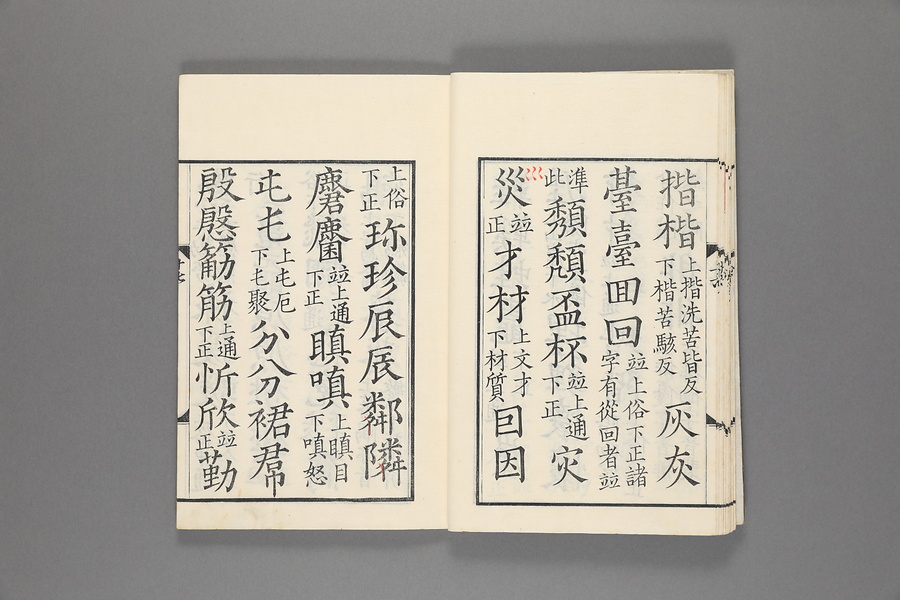 揩楷上揩洗苦皆反下楷苦駭反灰灰
䑓臺囬回竝上俗下正諸字有從回者竝
準此頽穨盃杯竝上通下正灾
災竝正才材上文才下材質囙因
上俗下正珎珍辰辰鄰隣
麏麕竝上通下正瞋嗔上瞋目下嗔怒
屯乇上屯厄下乇聚分分裙帬
殷慇筋筋上通下正忻欣竝正勤